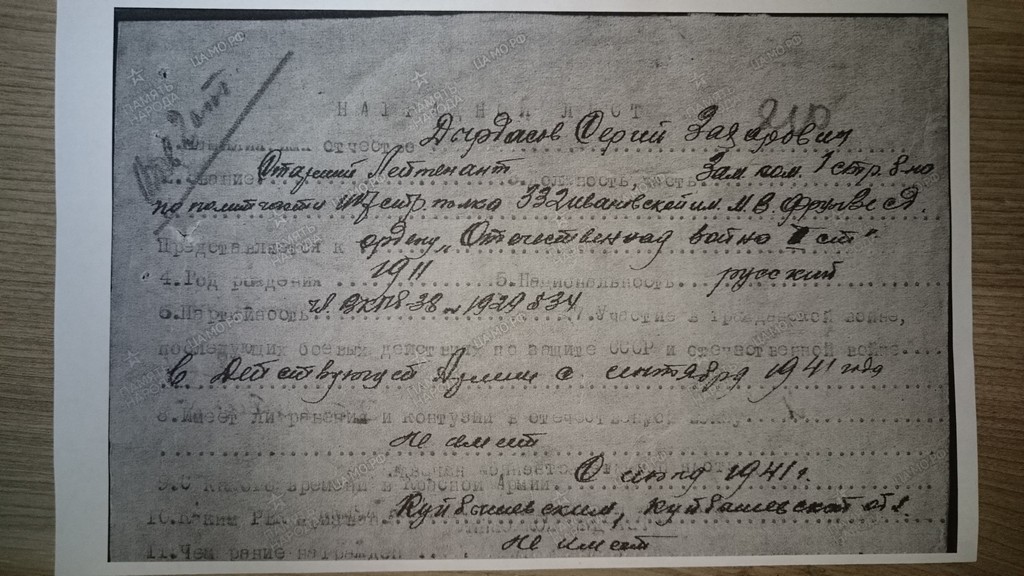 НАГРАДНОЙ ЛИСТ 210
1. Фамилия, имя отчество Сергй Захарович
2. Звание Старший Лейтенант 3. Должность, часть Зам ком. 1 стр. б-на
по политчасти стр полка 332 ивановской им. М.В. Фрунзе с.д.
Представляется к ордену „Отечественная война II ст“.
4. Год рождения 1911 5. Национальность русский
6. Партийность 7. Участие в гражданской войне,
последующих боевых действиях по защите СССР и отечественной войне
В Действующей Армии с сентября 1941 года
8. Имеет ли ранения и контузии в отечественную войну
не имеет
9. С какого времени в Красной Армии. С июля 1941 г.
10. Каким РВК призван Куйбышевским, Куйбышевской обл
11. Чем ранее награжден не имеет